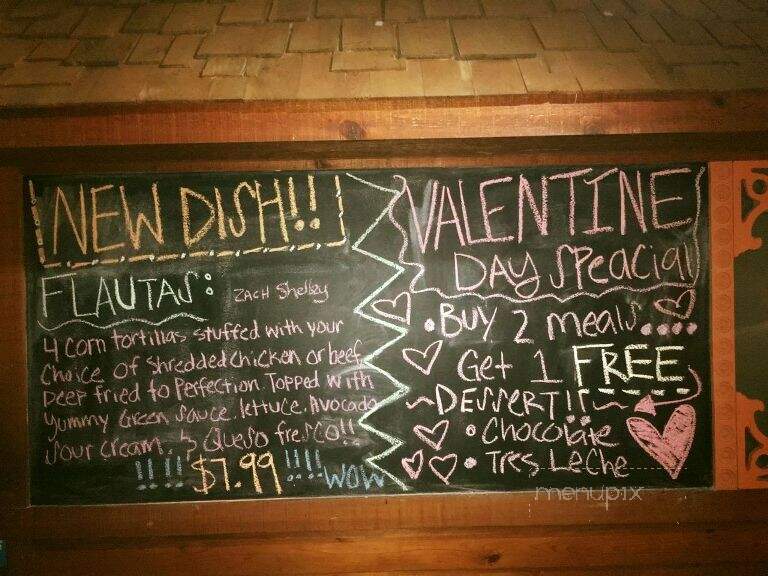 NEW DISH!!
FLAUTAS:
ZACH Shelley
4 corn tortillas stuffed with your
choice of shredded chicken or beef
Deep fried to perfection. Topped with
yummy Green sauce. lettuce. Avocado
sour cream. & Queso fresco!!
!!!! $7.99 !!!! WOW
VALENTINE
DAY SPEACIAl
• BUY 2 meals....
Get 1 FREE
~DESSERT!!~
• Chocolate
• Tres Leche
menupix